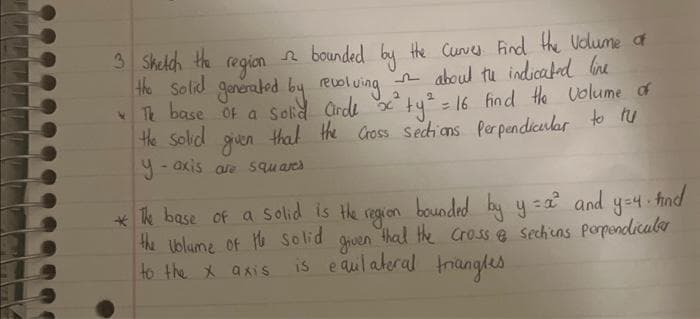 3 Sketch the region Ω bounded by the curves. Find the volume of
the solid generated by revolving Ω about the indicated line
* The base of a solid Circle x² + y² = 16 find the volume of
the solid given that the cross sections perpendicular to the
y-axis are squares
* The base of a solid is the region bounded by y = x² and y=4. find
the volume of the solid given that the cross sections perpendicular
to the x axis is equilateral triangles